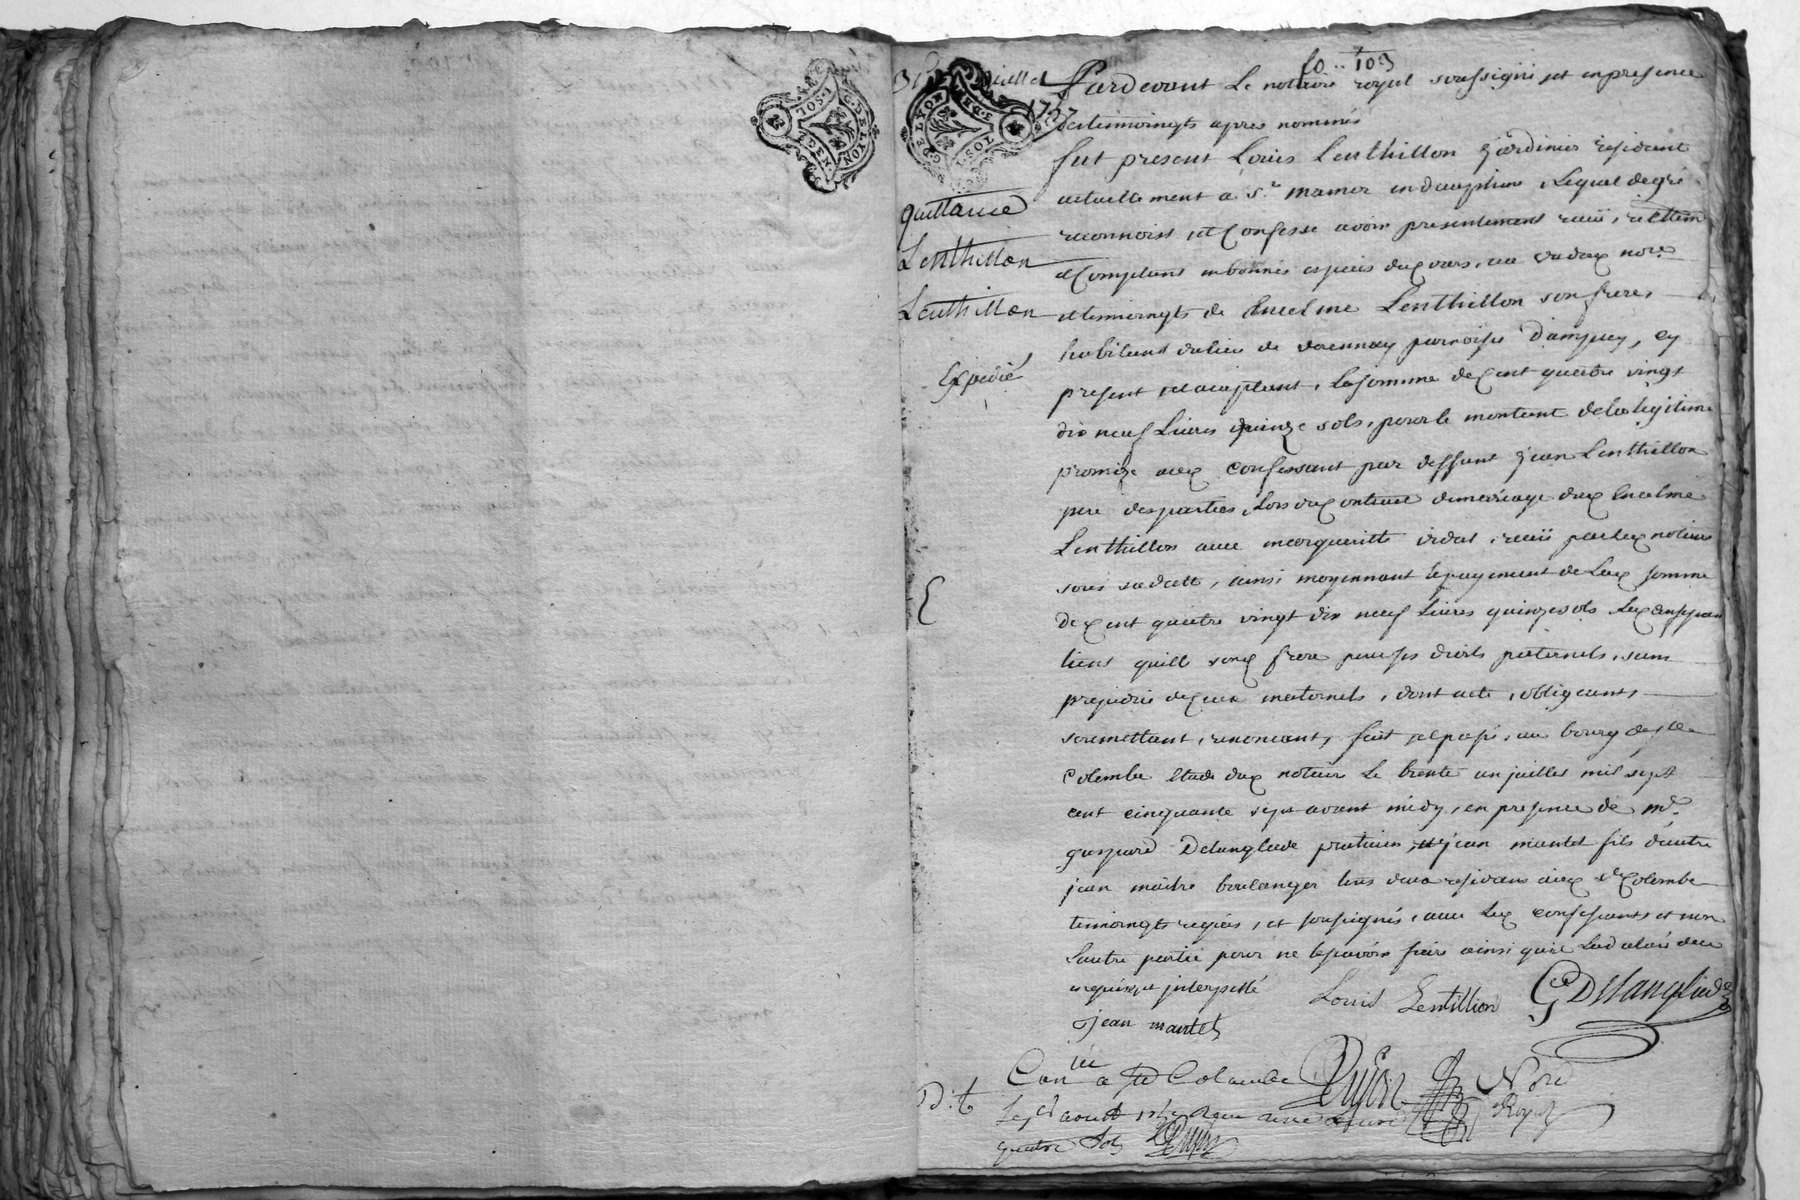 fo.. 103
31 Juillet
1757
G. DE LYON
2.SOLS
Quittance
Lenthillon
Lenthillon
Expedié
Pardevant Le notaire royal soussigné et en presence
des temoingts apres nommés
fut present Louis Lenthillon jardinier residant
actuellement a St. mamer en dauphiné, Lequel de gré
reconnoist et Confesse avoir presentement reçu, réellem
et Comptant en bonnes especes du Cours, au vu dud nore
et temoingts de Encelme Lenthillon son frere,
habitant du lieu de verennay parroisse D'ampuy, cy
present et acceptant, La somme de Cent quatre vingt
dix neuf Livres quinze sols, pour le montant de la legitime
promize aud confessant par deffunt jean Lenthillon
pere des parties, Lors du Contract de mariage dud Encelme
Lenthillon avec margueritte vidal, reçu par led notaire
sous sa datte, ainsi moyennant le payement de Lad somme
de Cent quatre vingt dix neuf Livres quinze sols Led confessant
tient quitte sond frere pour ses droits paternels, sans
prejudice de Ceux maternels, dont acte, obligeant,
soumettant, renonceant, fait et passé, au bourg de ste
Colombe Etude dud notaire Le trente un juillet mil sept
cent cinquante sept avant midy, en presence de mr
gaspard Delanglade praticien, et jean mantel fils d'autre
jean maitre boulanger tous deux residans aud ste Colombe
temoingts requis, et soussignés, avec Led confessant et non
Lautre partie pour ne le sçavoir faire ainsi qu'il La declaré de ce
enquis et interpellé
Louis Lentillion
G Delanglade
jean mantel
Con lé a Ste Colombe
Dujon
Nore
Royal
Le 1er aoust 1757 Reçu
quatre sols Dujon